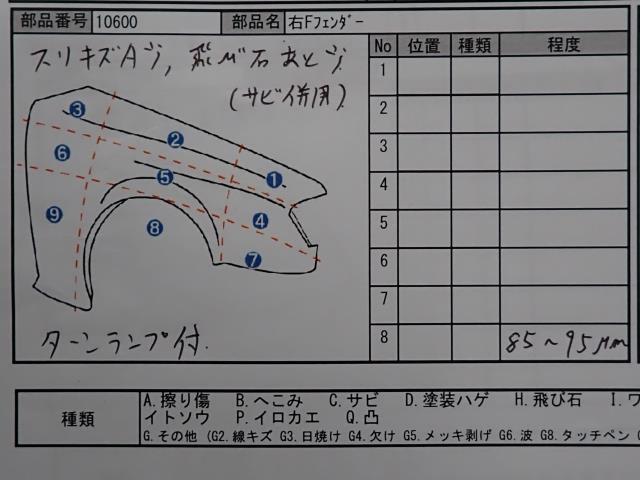 部品番号 10600 部品名 右Fフェンダー
スリキズAツ, 飛び石あとツ
(サビ併用)
No 位置 種類 程度
1
2
3
4
5
6
7
8 85~95μm
③
②
⑥
⑤
①
⑨
⑧
④
⑦
ターンランプ付.
種類
A.擦り傷 B.へこみ C.サビ D.塗装ハゲ H.飛び石 I.ワ
イトソウ P.イロカエ Q.凸
G.その他 (G2.線キズ G3.日焼け G4.欠け G5.メッキ剥げ G6.波 G8.タッチペン